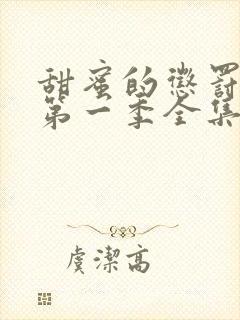 甜蜜的懲罰
第一季全集
虞潔高